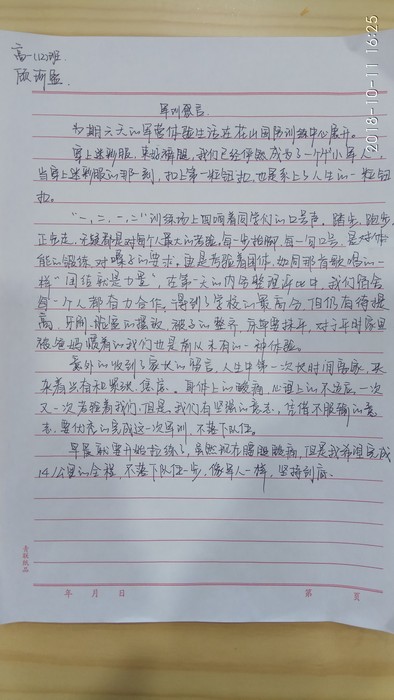 2018-10-11 16:25
高一(12)班
军训感言
为期六天的军营体验生活在花山国防训练中心展开。
穿上迷彩服,束好腰腿,我们已经俨然成为了一个个“小军人”,
当穿上迷彩服的那一刻,扣上第一粒钮扣,也是系上了人生的一粒钮
扣。
“一,二,一,二”训练场上回响着同学们的口号声,踏步,跑步,
正步走,无疑都是对每个人最大的考验。每一步抬脚,每一句口号,是对体
能的锻炼,对嗓子的要求。还是考验着团体。如同那首歌唱的一
样“团结就是力量”,在第一天的内务整理评比中,我们宿舍
每一个人都有力合作,得到了学校的最高分,但仍有待提
高,牙刷、脸盆的摆放,被子的整齐,
被爸妈惯着的我们也是前从未有的一种体验。
意外的收到了家长的留言,人生中第一次长时间离家,来
身体上的酸痛,心理上的不适应,一次
又一次考验着我们,但是,我们有坚强的意志,凭借不服输的意
志,要优秀的完成这一次军训,不落下队伍。
早晨就要开始拉练了,虽然现在腰腿酸痛,但是我希望完成
14公里的全程,不落下队伍一步,像军人一样,坚持到底。
年 月 日 第 页